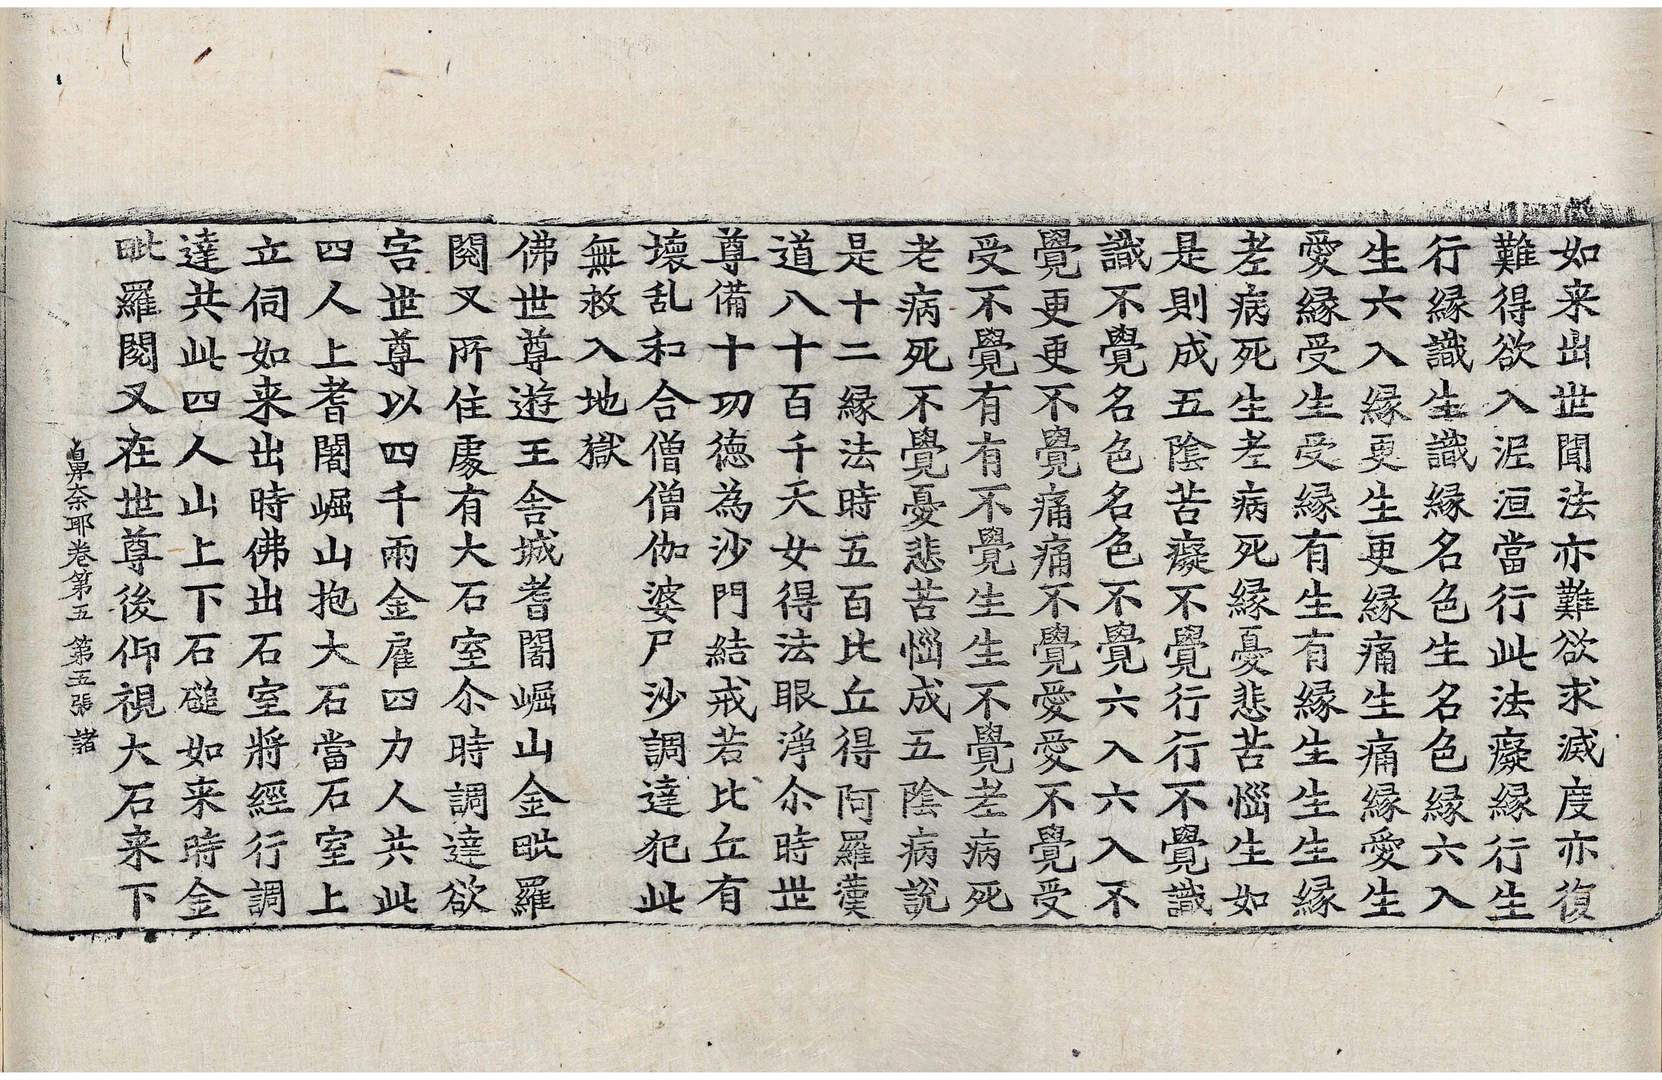 如来出世聞法亦難欲求滅度亦復
難得欲入泥洹當行此法癡縁行生
行縁識生識縁名色生名色縁六入
生六入縁更生更縁痛生痛縁愛生
愛縁受生受縁有生有縁生生生縁
老病死生老病死縁憂悲苦惱生如
是則成五陰苦癡不覺行行不覺識
識不覺名色名色不覺六入六入不
覺更更不覺痛痛不覺愛愛不覺受
受不覺有有不覺生生不覺老病死
老病死不覺憂悲苦惱成五陰病說
是十二縁法時五百比丘得阿羅漢
道八十百千天女得法眼淨尒時世
尊備十功德為沙門結戒若比丘有
壞乱和合僧僧伽婆尸沙調達犯此
無救入地獄
佛世尊遊王舍城耆闍崛山金毗羅
閱叉所住處有大石室尒時調達欲
害世尊以四千兩金雇四力人共此
四人上耆闍崛山抱大石當石室上
立伺如来出時佛出石室將經行調
達共此四人山上下石磓如来時金
毗羅閱叉在世尊後仰視大石来下
鼻奈耶卷第五 第五張 諸